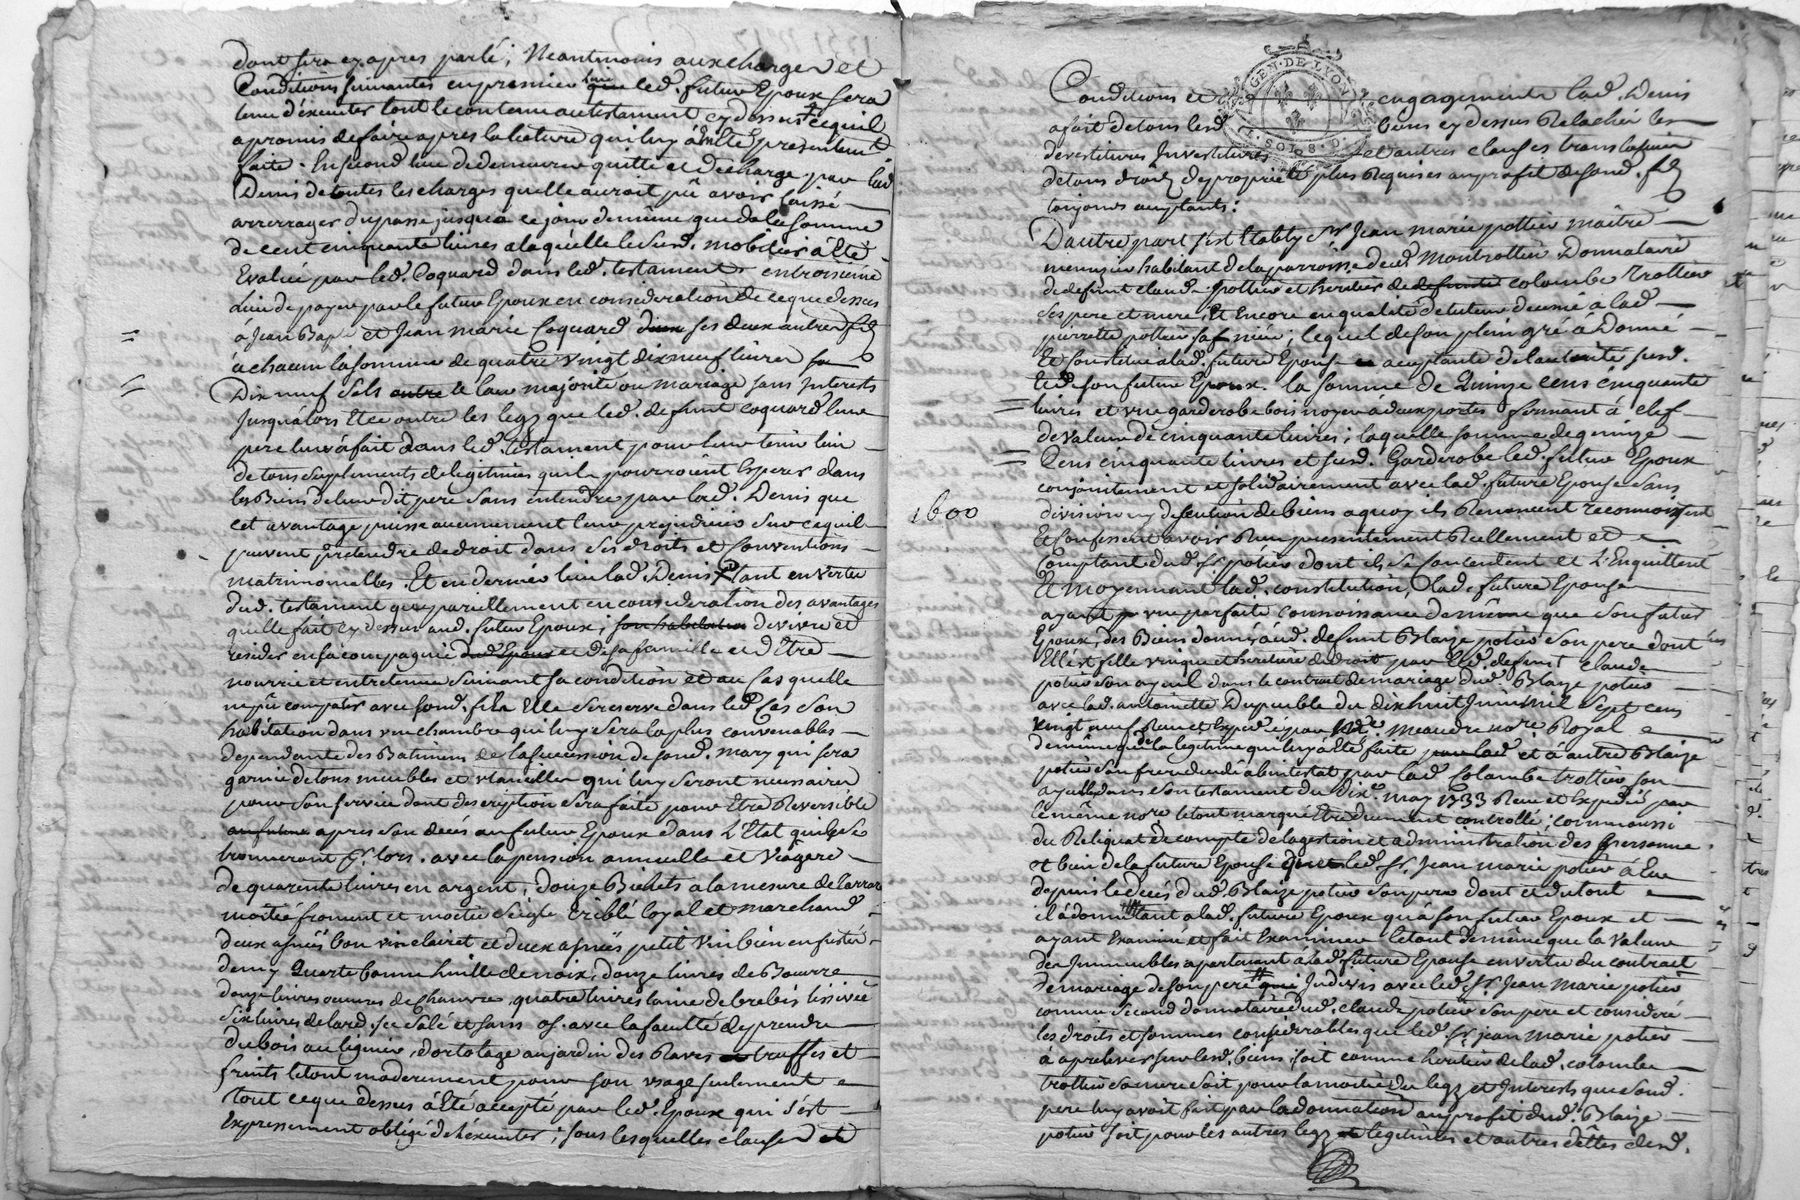 dont sera cy apres parlé; Neantmoins aux charges et
Conditions suivantes en premier lieu led. futur Epoux sera
tenu d'éxecuter tout le contenu au testament cy dessus ce quil
a promis de faire apres la lecture qui luy à été presentement
faite. En second lieu de demeurer quitte et décharge par lad.
Denis de toutes les charges quelle auroit pû avoir laissé
arrerrages du passé jusqu'a ce jour de même que de la somme
de cent cinquante livres a laquelle le susd. mobilier à été
Evalué par led. Coquard dans led. testament en troisieme
Lieu de payer par le futur Epoux en consideration de ce que dessus
à Jean Bapte et Jean marie Coquard ses deux autres fils
à chacun la somme de quatre vingt dix neuf livres
Dix neuf sols le leur majorité ou mariage sans interests
Jusqu'alors Et ce outre les legs que led. defunt coquard leur
pere leur à fait dans led. testament pour leur tenir lieu
de tous suplements de legitimes quils pourroient Esperer dans
les Biens de leur dit pere sans entendre par lad. Denis que
cet avantage puisse aucunement leur prejudicier sur ce quil
peuvent prétendre de droit dans ses droits et Conventions
matrimonialles. Et en dernier lieu lad. Denis Etant en vertu
dud. testament que pareillement en consideration des avantages
quelle fait cy dessus aud. futur Epoux; de vivre et
resider en sa compagnie et de sa famille et d'être
nourrie et entretenue suivant sa condition et au cas quelle
ne pû compatir avec sond. fils Elle se reserve dans led. Cas son
habitation dans une chambre qui luy sera la plus convenable
dependante des Batimens de la succession de sond. mary qui sera
garnie de tous meubles et utancilles qui luy seront necessaires
pour son service dont description sera faite pour Etre Reversible
apres son decés au futur Epoux dans L'Etat quils se
trouveront pr. lors. avec la pension annuelle et Viagere
de quarente livres en argent, douze Bichets a la mesure de tarrare
moitié froment et moitié seigle criblé loyal et marchand
deux asnées bon vin clairet et deux asnées petit vin bien enfusté
demy Quarte bonne huille de noix, douze livres de Beurre
douze livres oeuvres de chanvre, quatre livres laine de brebis lissivée
six livres de lard sec salé et sans os. avec la faculté de prendre
du bois au lignier, d'ortolage au jardin des Raves truffes et
fruits le tout moderement pour son usage seulement
Tout ce que dessus à été accepté par led. Epoux qui s'est
Expressement obligé de l'éxecuter; sous lesquelles clauses et
GEN. DE LYON
Conditions et engagements lad. Denis
a fait de tous lesd. biens cy dessus Relachés les
devestitures Investitures et autres clauses translatives
de tous droits de proprieté plus Requises au profit de sond. fils
toujours acceptants:
D'autre part s'est Etably Sr Jean marie pottier maitre
menuizier habitant de la parroisse dud. Montrottier Donnataire
de defunt claude pottier et heritier de colombe trottier
ses pere et mere, Et encore en qualité de tuteur decerné a lad.
pierrette pottier sa niéce; lequel de son plein gré à Donné
Et Constitué a lad. future Epouse acceptante de l'autorité susd.
Et de son futur Epoux. la somme de Quinze cens cinquante
livres et une garderobe bois noyer à deux portes fermant à clef
de valeur de cinquante livres; laquelle somme de quinze
Cens cinquante livres et susd. Garderobe led. futur Epoux
conjointement et solidairement avec lad. future Epouse sans
1600
division ny discution de biens a quoy ils Renoncent reconnoissent
Et Confessent avoir Reçu presentement Reellement et
Comptant dud. Sr potier dont ils se contentent et L'Enquittent
Et moyennant lad. constitution, lad. future Epouse
ayant une parfaite connoissance de même que son futur
Epoux, des Biens donnés aud. defunt Blaize potier son pere dont
Elle est fille unique et heritiere de droit par led. defunt claude
potier son ayeul dans le contract de mariage dud. Blaize potier
avec lad. antoinette Dupuble du dix huit Juin mil sept cens
vingt neuf Reçu et Expedié par Me meaudre nore Royal
de même que de la legitime qui luy a été faite et à autre Blaize
potier son frere decedé abintestat par lad. Colombe trottier son
ayeulle dans son testament du dixe. may 1733 Reçu et Expedié par
le même nore le tout marqué Etre duement controllé; comm'aussi
du Reliquat de compte de la gestion et administration des personne
et bien de la future Epouse led. Sr. Jean marie potier à Eue
depuis le decés dud. Blaize potier son pere dont et du tout
il à donné tant a lad. future Epoux qu'a son futur Epoux et
ayant Examiné et fait Examiner le tout de même que la valeur
des Immeubles apartenant à lad. future Epouse en vertu du contract
de mariage de son pere Indivis avec led. Sr. Jean Marie potier
comme second donnataire dud. claude potier son pere et consideré
les droits et sommes considerables que led. Sr. jean marie potier
à a prelever sur lesd. biens soit comme heritier de lad. colombe
trottier sa mere soit pour la moitié du legs et Interests que sond.
pere luy avoit fait par la donnation au profit dud. Blaize
potier soit pour les autres legs legitimes et autres dettes desd.